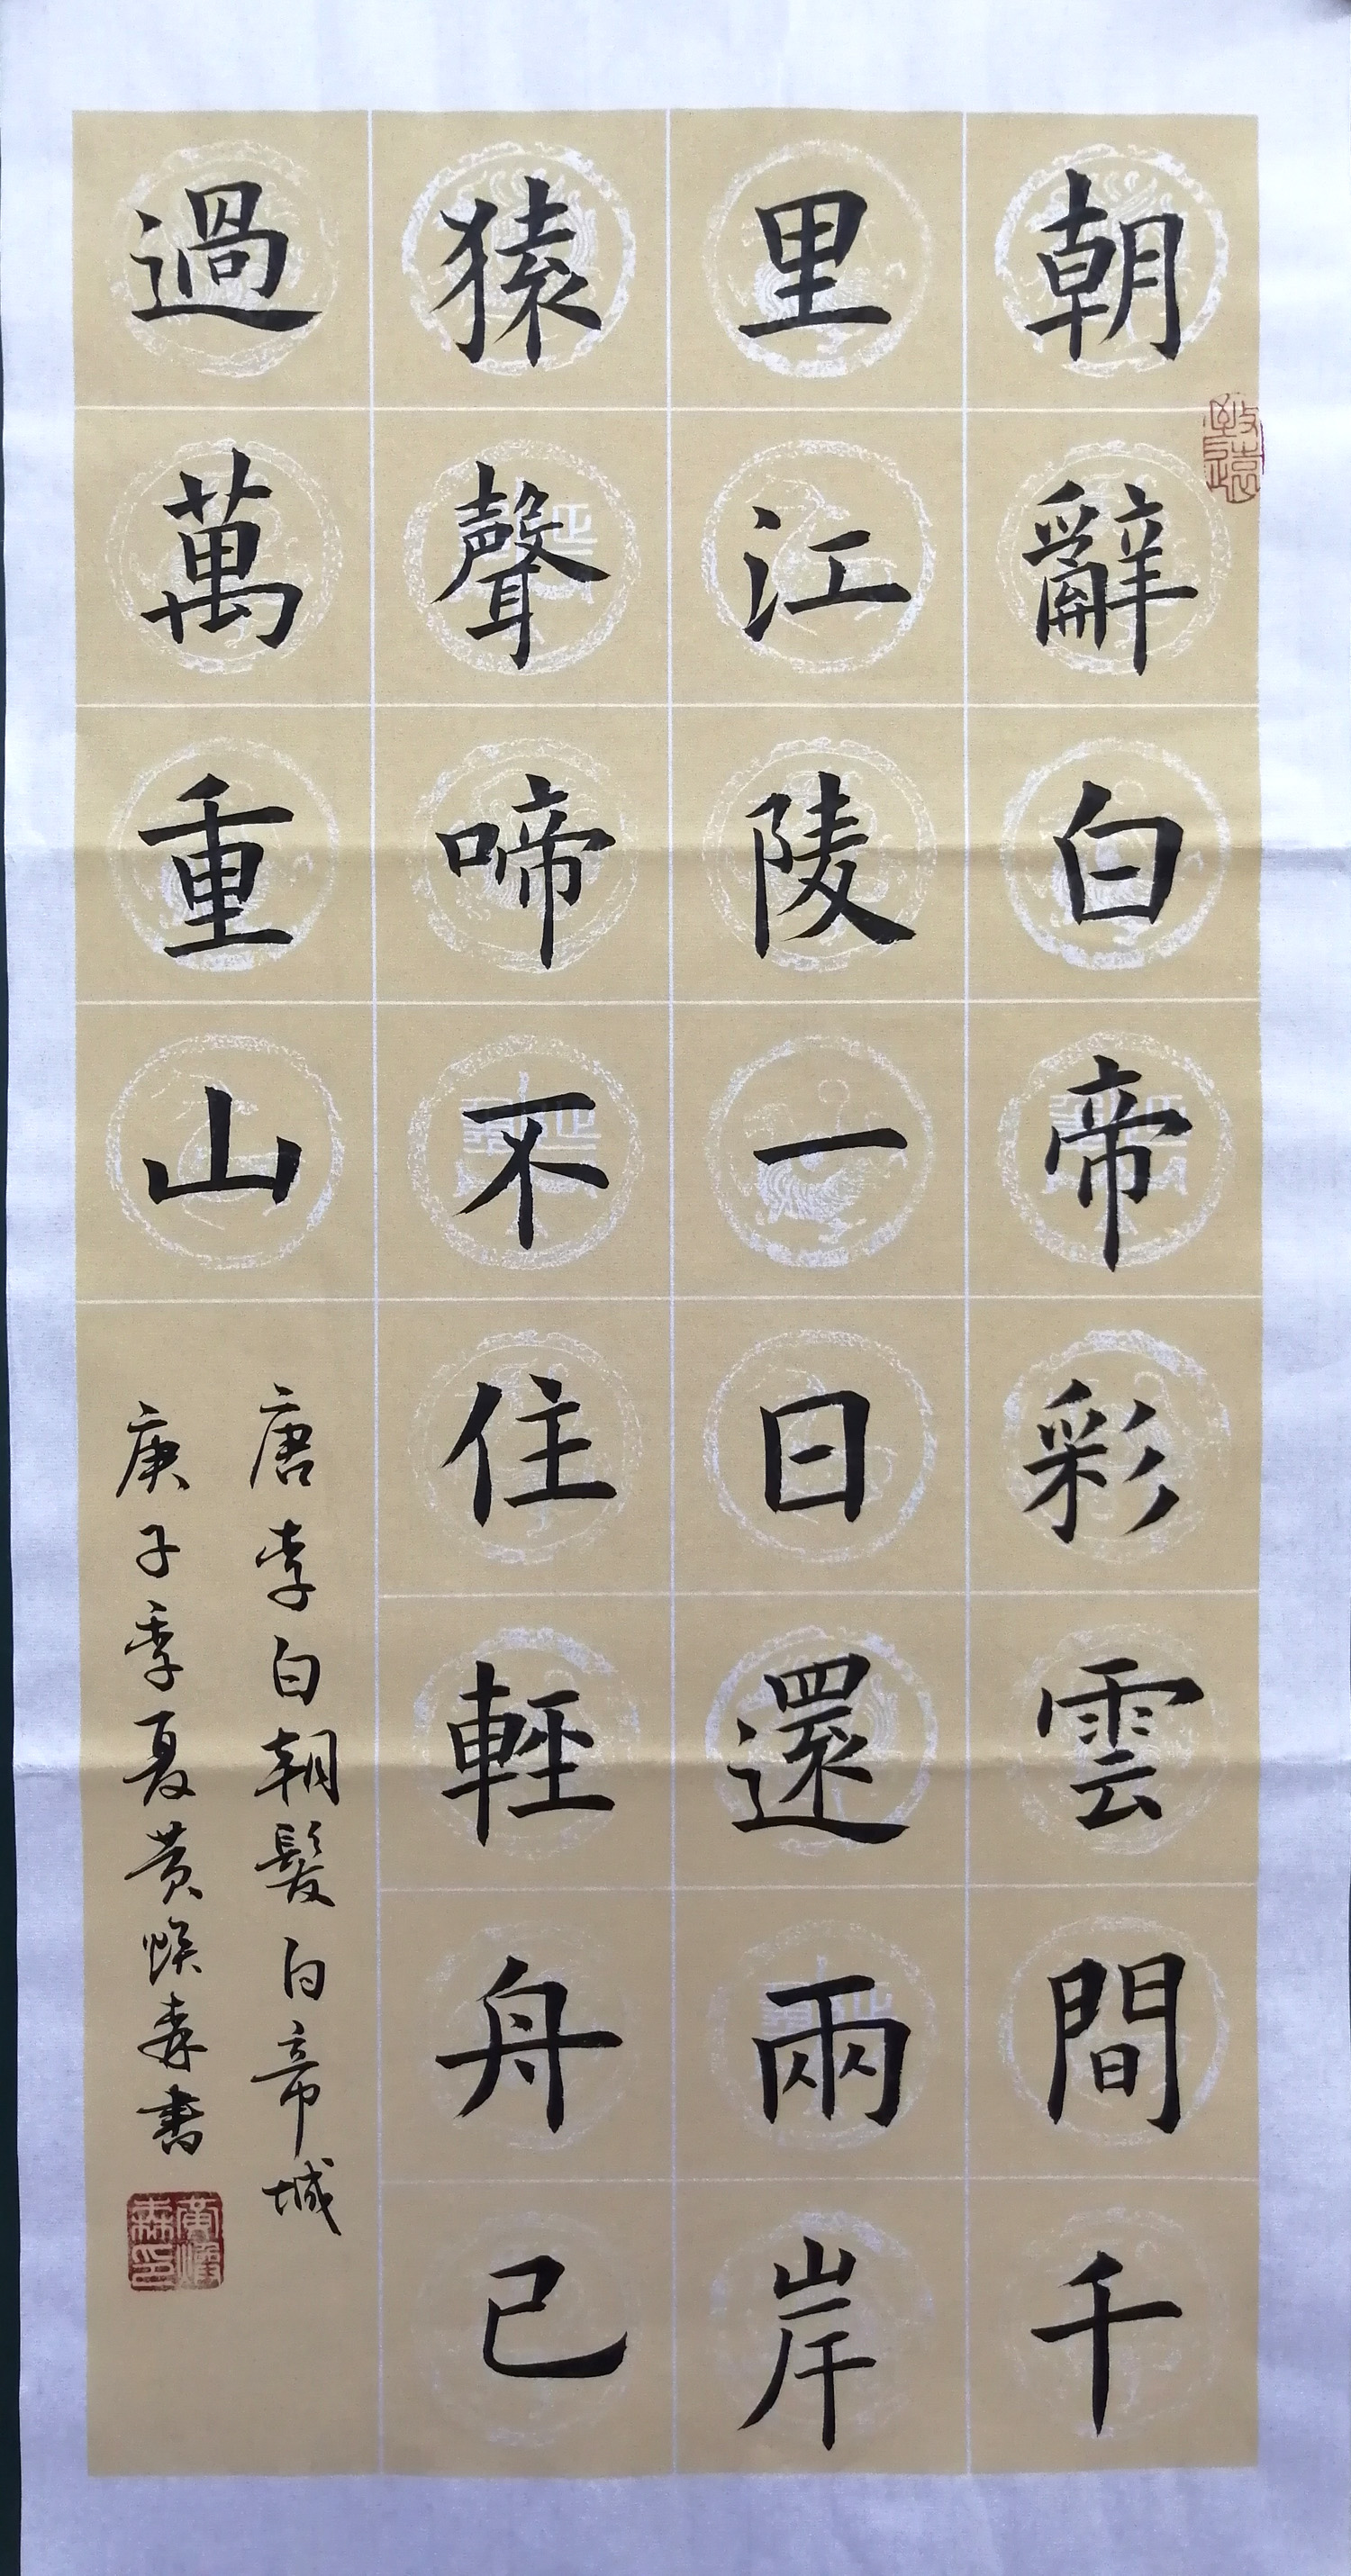 朝辭白帝彩雲間千
里江陵一日還兩岸
猿聲啼不住輕舟已
過萬重山
唐李白朝髮白帝城
庚子季夏黃煥森書
致遠
黃煥森印